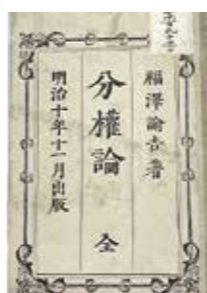 福澤諭吉著
分權論
全
明治十年十一月出版